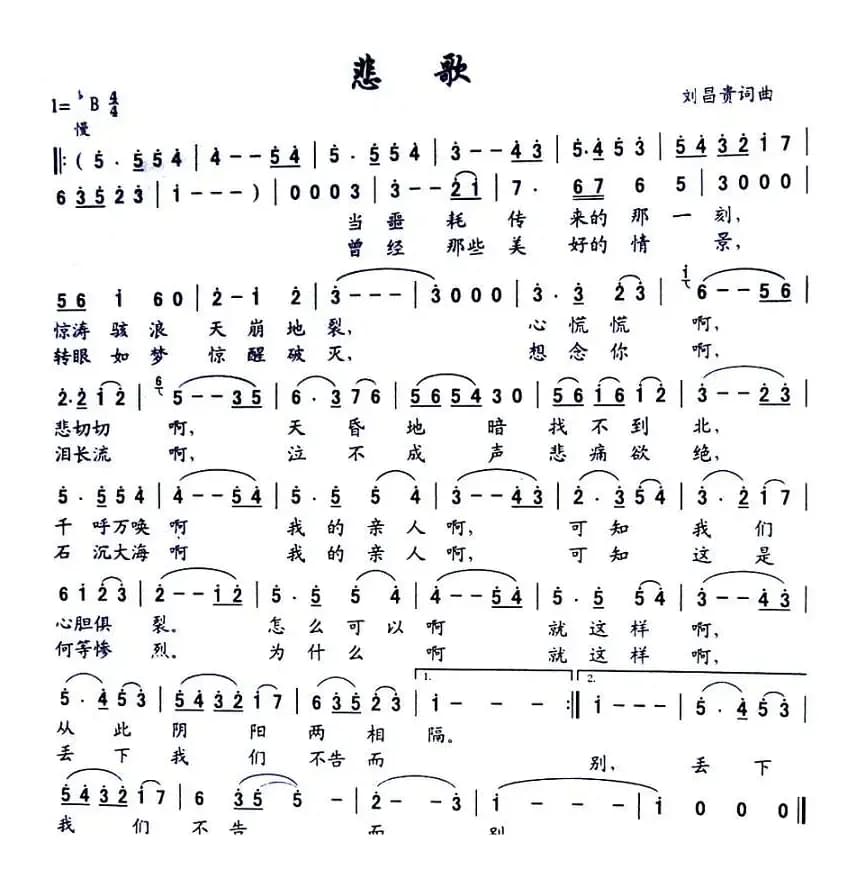 悲 歌
1=♭B 4/4
刘昌贵词曲
慢
‖:( 5̇ . 5̇ 5̇ 4̇ | 4̇ - - 5̇ 4̇ | 5̇ . 5̇ 5̇ 4̇ | 3̇ - - 4̇ 3̇ | 5̇ . 4̇ 5̇ 3̇ | 5̇ 4̇ 3̇ 2̇ 1̇ 7 |
6 3̇ 5̇ 2̇ 3̇ | 1̇ - - - ) | 0 0 0 3̇ | 3̇ - - 2̇ 1̇ | 7 . 6 7 6 5 | 3 0 0 0 |
当 噩 耗 传 来的 那 一 刻,
曾 经 那些 美 好的 情 景,
5 6 1̇ 6 0 | 2̇ - 1̇ 2̇ | 3̇ - - - | 3̇ 0 0 0 | 3̇ . 3̇ 2̇ 3̇ | 1̇ 6 - - 5 6 |
惊涛 骇 浪 天 崩 地 裂, 心 慌 慌 啊,
转眼 如 梦 惊 醒 破 灭, 想 念 你 啊,
2̇ . 2̇ 1̇ 2̇ | 6 5 - - 3 5 | 6 . 3̇ 7 6 | 5 6 5 4 3 0 | 5 6 1̇ 6 1̇ 2̇ | 3̇ - - 2̇ 3̇ |
悲切切 啊, 天 昏 地 暗 找 不 到 北,
泪长流 啊, 泣 不 成 声 悲 痛 欲 绝,
5̇ . 5̇ 5̇ 4̇ | 4̇ - - 5̇ 4̇ | 5̇ . 5̇ 5̇ 4̇ | 3̇ - - 4̇ 3̇ | 2̇ . 3̇ 5̇ 4̇ | 3̇ . 2̇ 1̇ 7 |
千 呼万唤 啊 我 的 亲 人 啊, 可 知 我 们
石 沉大海 啊 我 的 亲 人 啊, 可 知 这 是
6 1̇ 2̇ 3̇ | 2̇ - - 1̇ 2̇ | 5̇ . 5̇ 5̇ 4̇ | 4̇ - - 5̇ 4̇ | 5̇ . 5̇ 5̇ 4̇ | 3̇ - - 4̇ 3̇ |
心胆俱 裂。 怎 么 可 以 啊 就 这 样 啊,
何等惨 烈。 为 什 么 啊 就 这 样 啊,
1. 2.
5̇ . 4̇ 5̇ 3̇ | 5̇ 4̇ 3̇ 2̇ 1̇ 7 | 6 3̇ 5̇ 2̇ 3̇ | 1̇ - - - :‖ 1̇ - - - | 5̇ . 4̇ 5̇ 3̇ |
从 此 阴 阳 两 相 隔。
丢 下 我 们 不告 而 别, 丢 下
5̇ 4̇ 3̇ 2̇ 1̇ 7 | 6 3̇ 5̇ 5̇ - | 2̇ - - 3̇ | 1̇ - - - | 1̇ 0 0 0 ‖
我 们 不 告 而 别